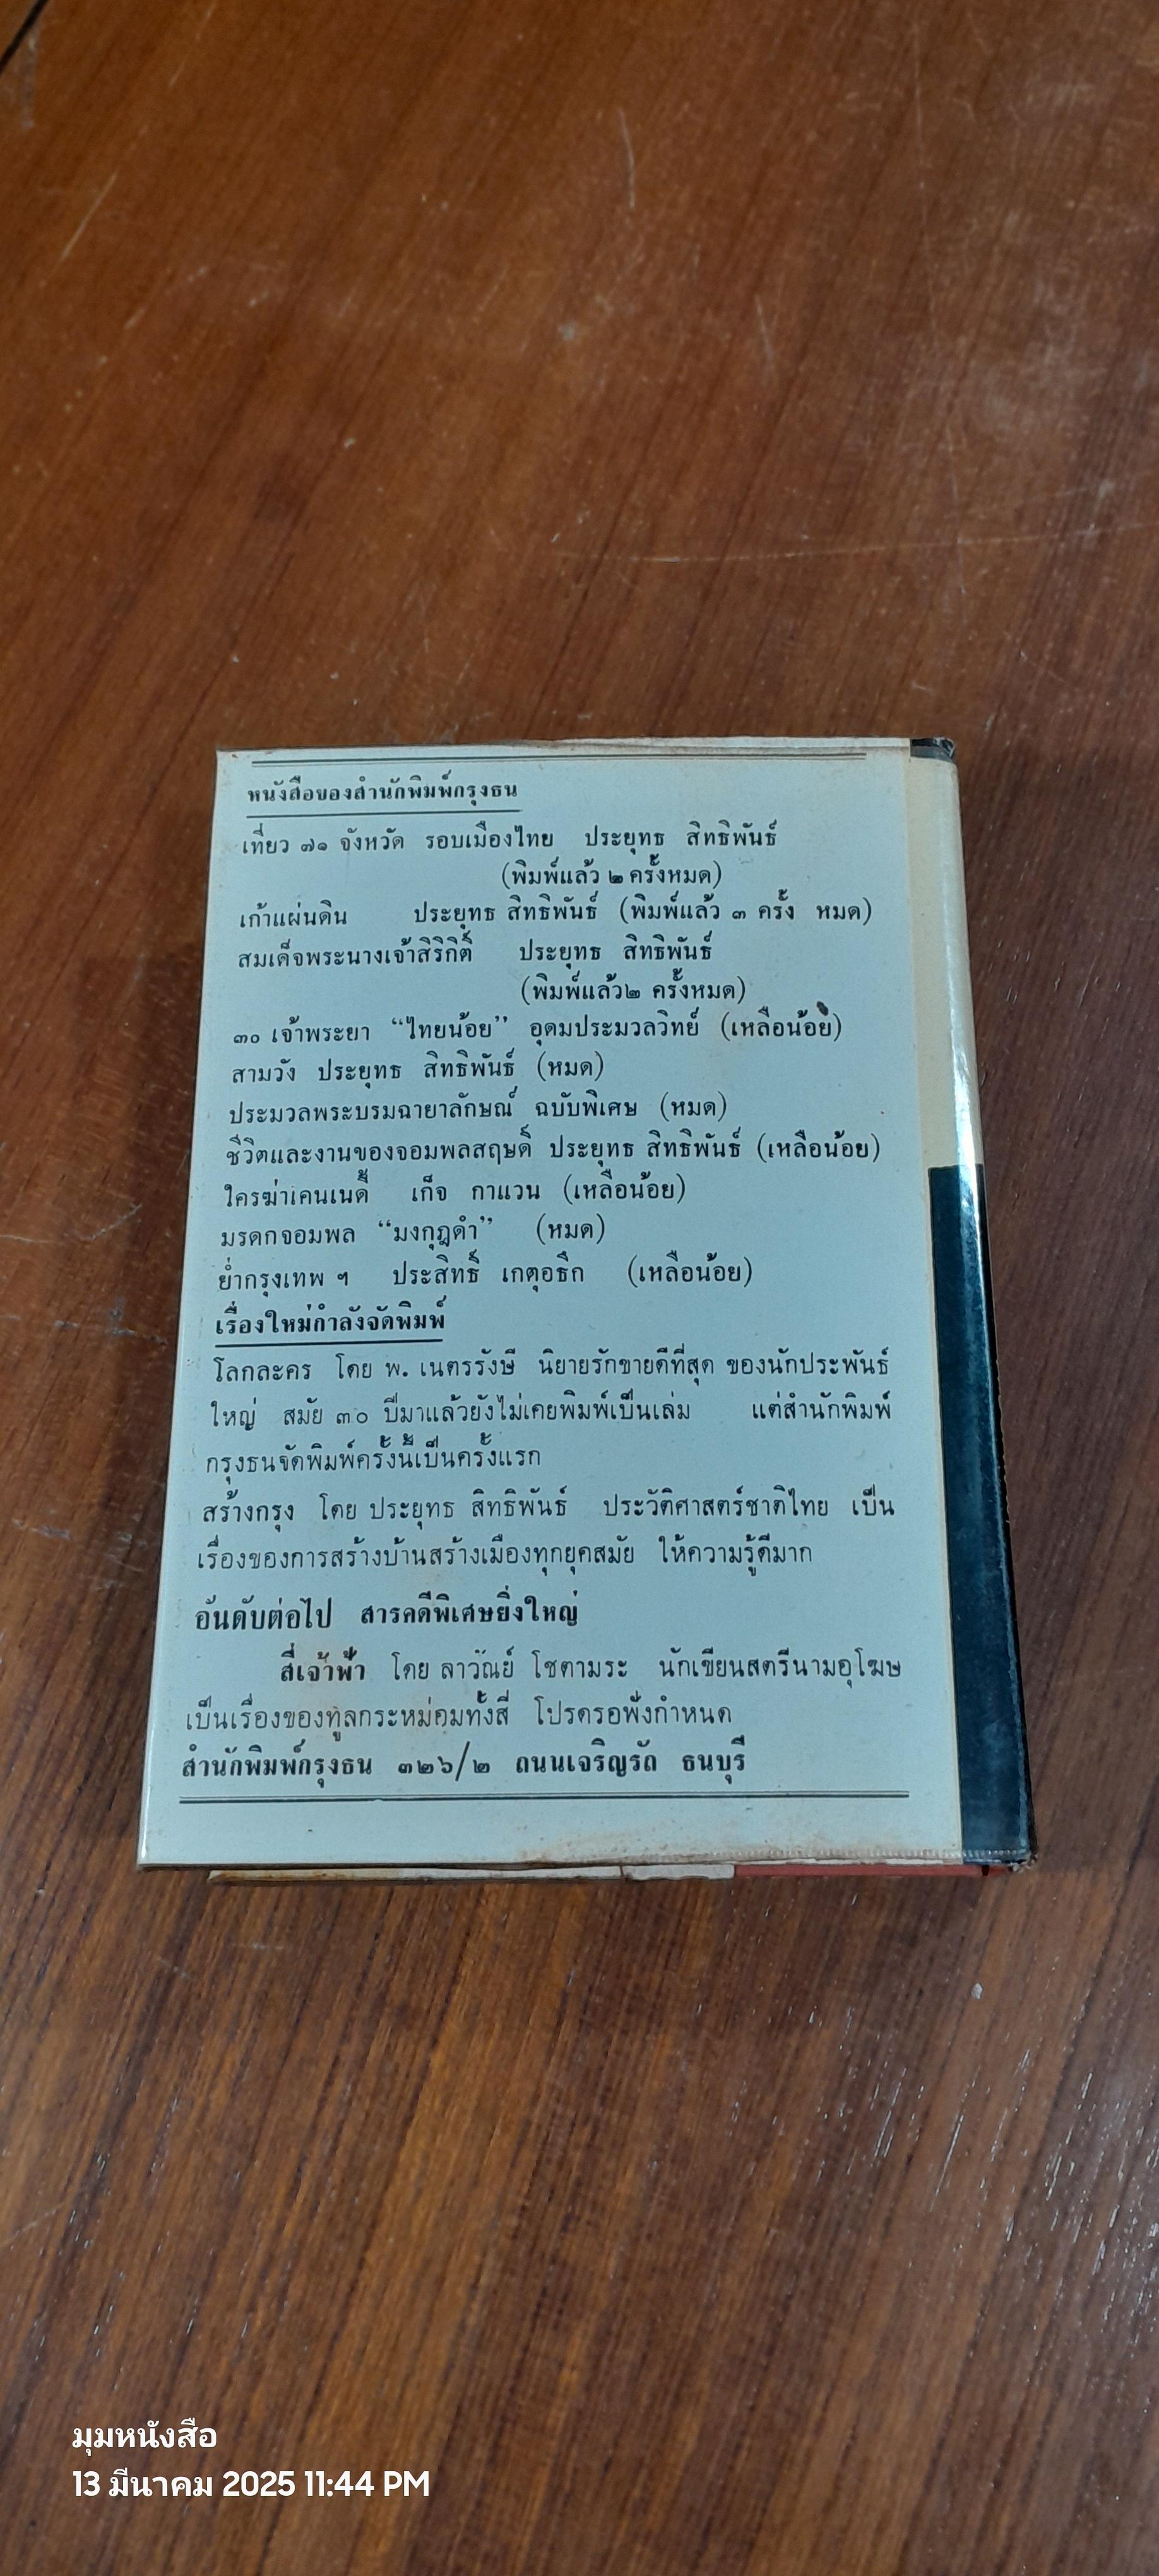 หนังสือของสำนักพิมพ์กรุงธน
เที่ยว ๗๑ จังหวัด รอบเมืองไทย ประยุทธ สิทธิพันธ์
(พิมพ์แล้ว ๒ ครั้งหมด)
เก้าแผ่นดิน ประยุทธ สิทธิพันธ์ (พิมพ์แล้ว ๓ ครั้ง หมด)
สมเด็จพระนางเจ้าสิริกิติ์ ประยุทธ สิทธิพันธ์
(พิมพ์แล้ว๒ ครั้งหมด)
๓๐ เจ้าพระยา “ไทยน้อย” อุดมประมวลวิทย์ (เหลือน้อย)
สามวัง ประยุทธ สิทธิพันธ์ (หมด)
ประมวลพระบรมฉายาลักษณ์ ฉบับพิเศษ (หมด)
ชีวิตและงานของจอมพลสฤษดิ์ ประยุทธ สิทธิพันธ์ (เหลือน้อย)
ใครฆ่าเคนเนดี้ เก็จ กาแวน (เหลือน้อย)
มรดกจอมพล “มงกุฎดำ” (หมด)
ย่ำกรุงเทพ ฯ ประสิทธิ์ เกตุอธิก (เหลือน้อย)
เรื่องใหม่กำลังจัดพิมพ์
โลกละคร โดย พ. เนตรรังษี นิยายรักขายดีที่สุด ของนักประพันธ์
ใหญ่ สมัย ๓๐ ปีมาแล้วยังไม่เคยพิมพ์เป็นเล่ม แต่สำนักพิมพ์
กรุงธนจัดพิมพ์ครั้งนี้เป็นครั้งแรก
สร้างกรุง โดย ประยุทธ สิทธิพันธ์ ประวัติศาสตร์ชาติไทย เป็น
เรื่องของการสร้างบ้านสร้างเมืองทุกยุคสมัย ให้ความรู้ดีมาก
อันดับต่อไป สารคดีพิเศษยิ่งใหญ่
สี่เจ้าฟ้า โดย ลาวัณย์ โชตามระ นักเขียนสตรีนามอุโฆษ
เป็นเรื่องของทูลกระหม่อมทั้งสี่ โปรดรอฟังกำหนด
สำนักพิมพ์กรุงธน ๓๒๖/๒ ถนนเจริญรัถ ธนบุรี
มุมหนังสือ
13 มีนาคม 2025 11:44 PM